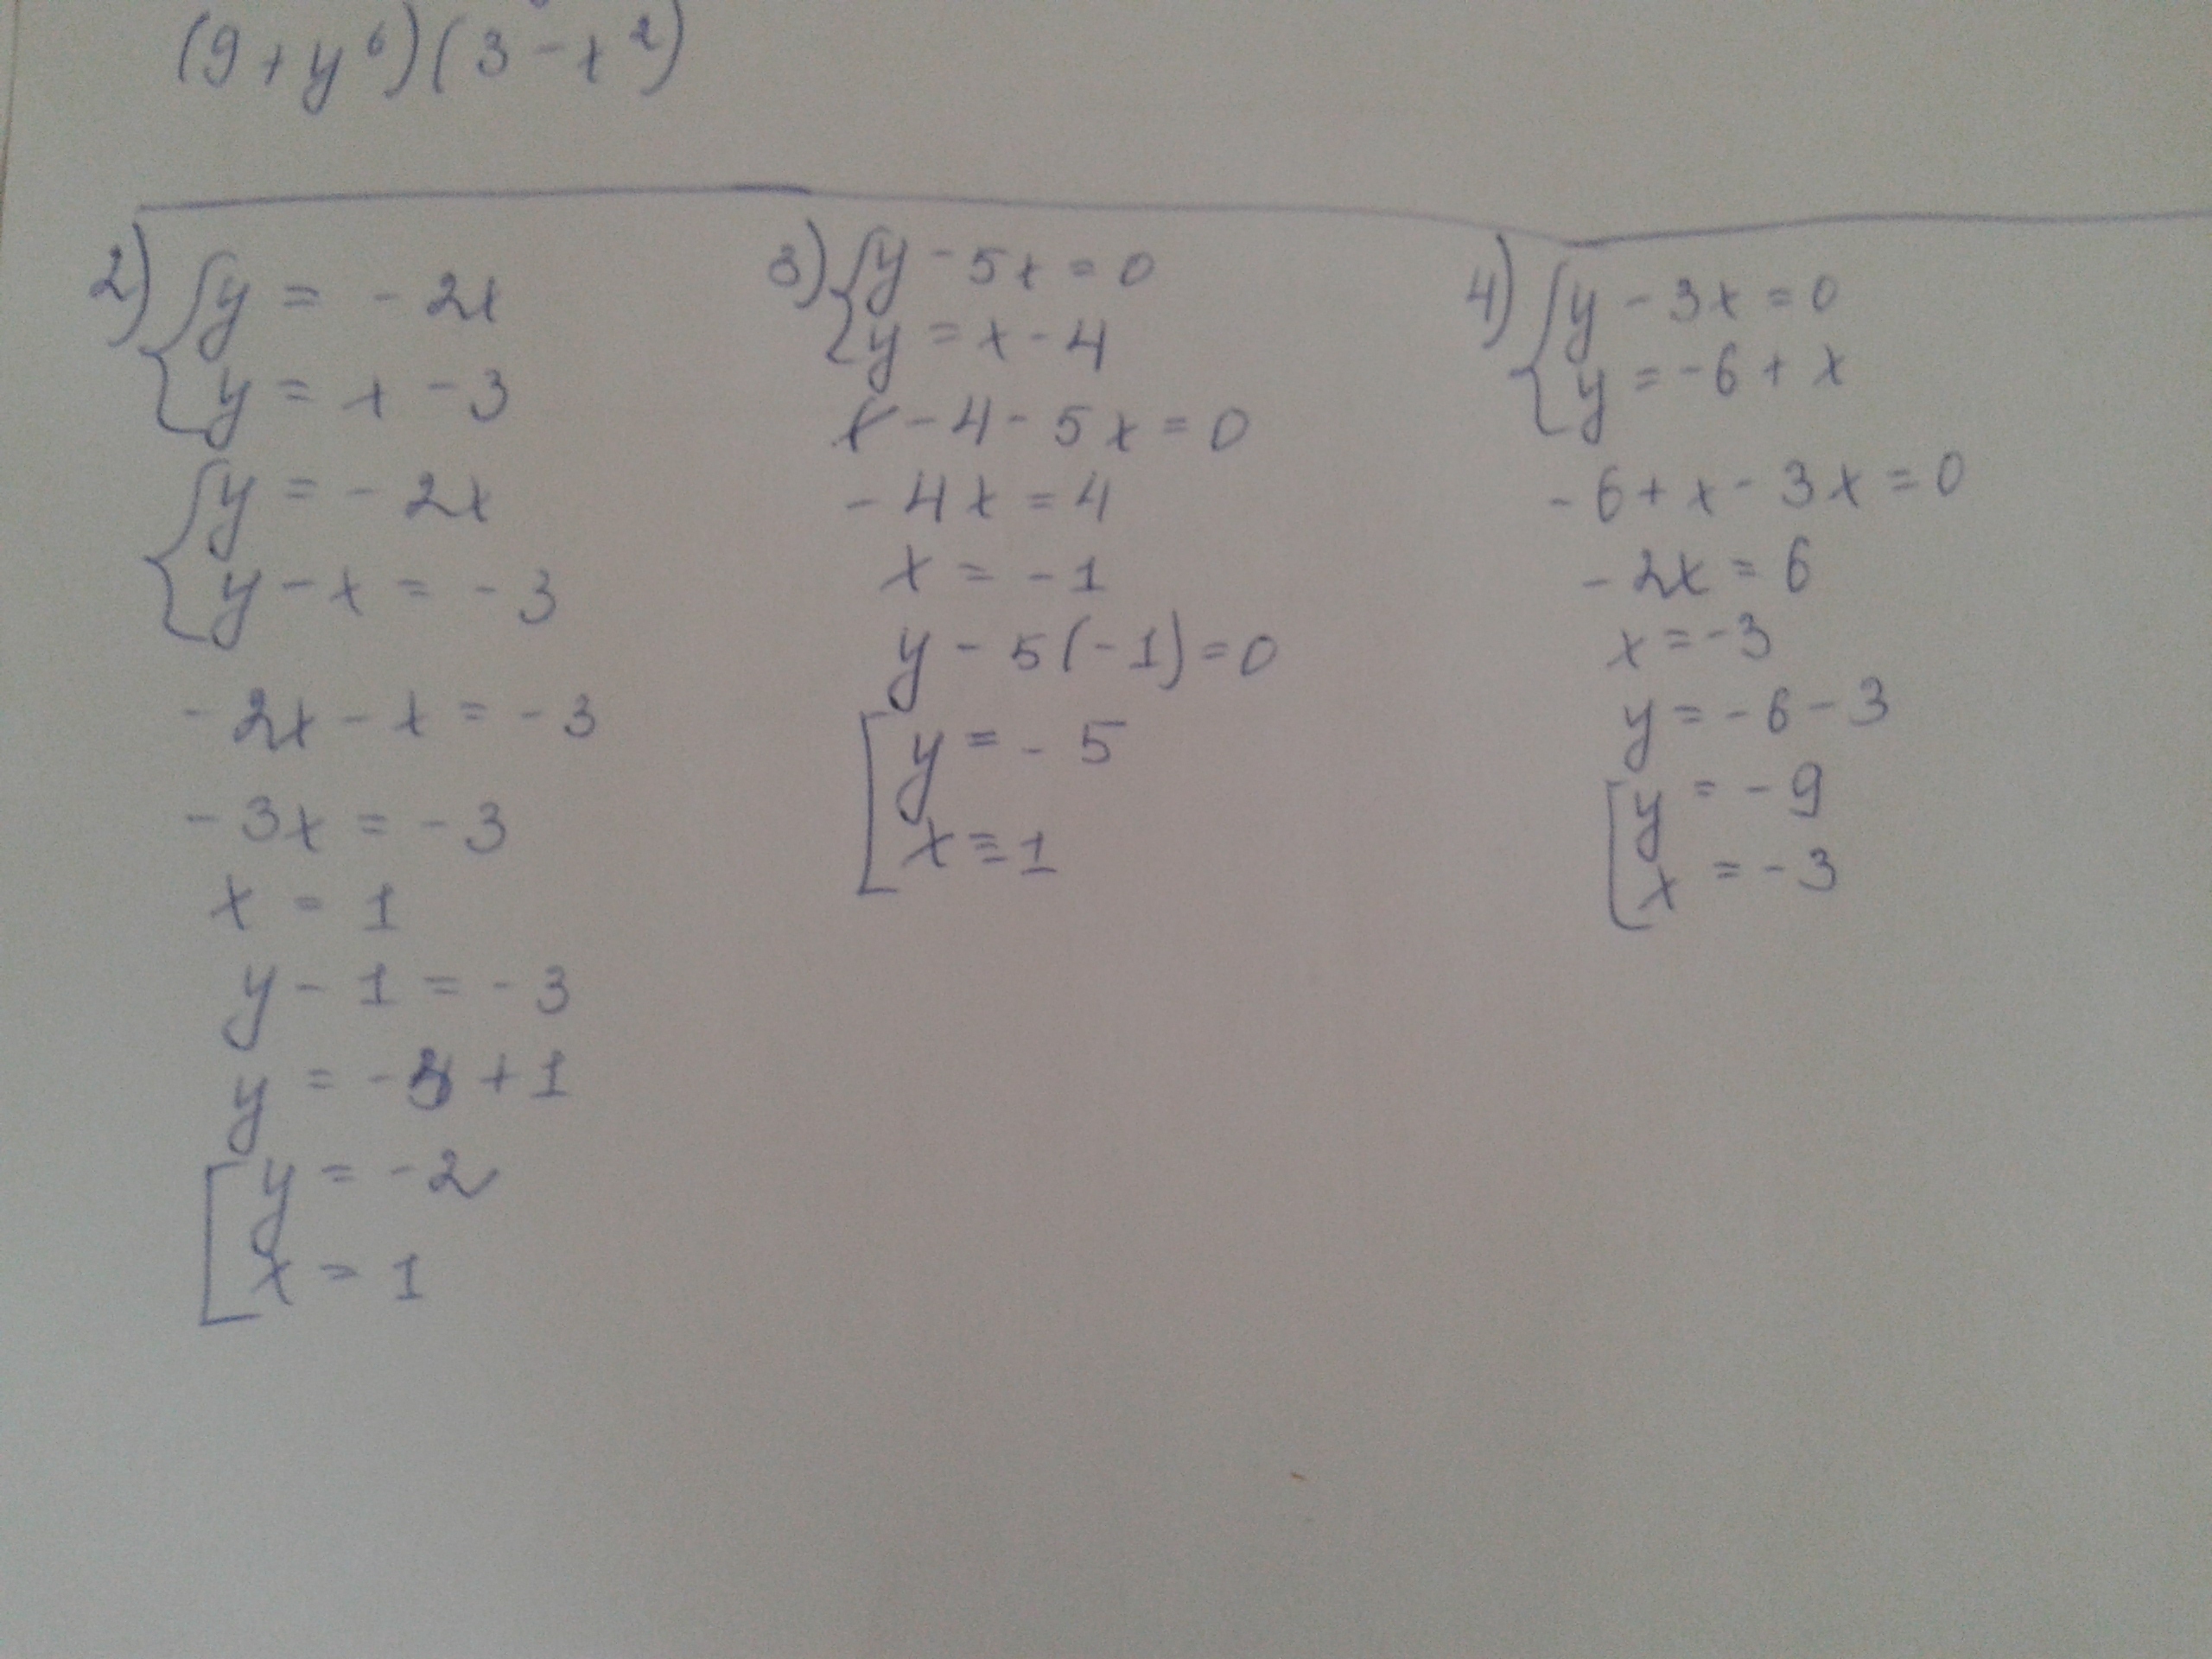 (9+y⁶)(3-x²)
2) { y = -2x
y = x -3
{ y = -2x
y - x = -3
-2x - x = -3
-3x = -3
x = 1
y - 1 = -3
y = -3 + 1
[ y = -2
x = 1
3) { y - 5x = 0
y = x - 4
x - 4 - 5x = 0
-4x = 4
x = -1
y - 5(-1) = 0
[ y = -5
x = -1
4) { y - 3x = 0
y = -6 + x
-6 + x - 3x = 0
-2x = 6
x = -3
y = -6 - 3
[ y = -9
x = -3